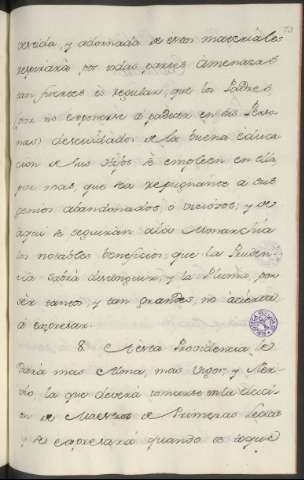 vestida, y adornada de estos materiales
respirará por todas partes amenazas
tan fuertes es regular, que los Padres
por no exponerse á padecer en sus Perso-
nas descuidados de la buena educa-
cion de sus hijos se empleen en ella
por mas, que sea repugnante a sus
genios abandonados, o viciosos, y de
aqui se seguirán ála Monarchia
los notables beneficios que la Pruden-
cia sabrá distinguir, y la Pluma, por
ser tantos, y tan grandes, no acierta
a expresar.
8. A esta Providencia, se
dará mas Alma, mas vigor, y Ner-
vio, la que deverá tomarse en la elecci-
on de Maestros de Primeras letras
y se expresará quando se toque